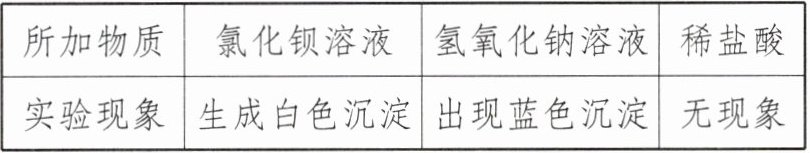 所加物质 氯化钡溶液 氢氧化钠溶液 稀盐酸
实验现象 生成白色沉淀 出现蓝色沉淀 无现象